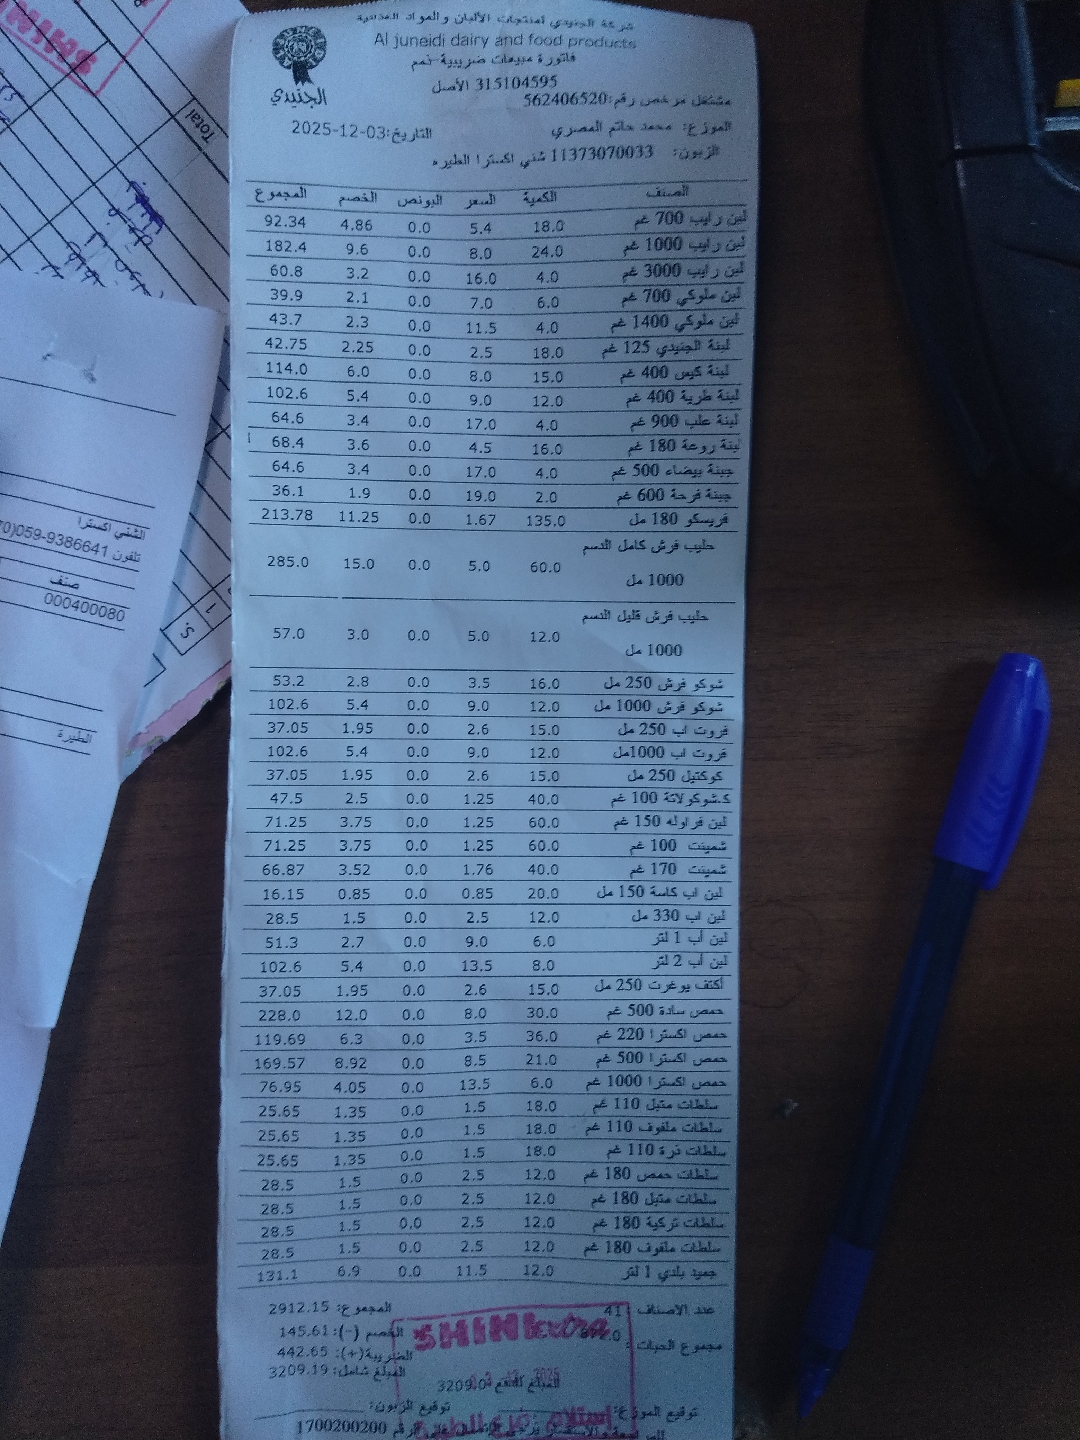 شركة الجنيدي لمنتجات الألبان و المواد الغذائية
Al juneidi dairy and food products
فاتورة مبيعات ضريبية-نمم
315104595 الأصل
مشتغل مرخص رقم:562406520
الجنيدي
الموزع: محمد حاتم المصري التاريخ:2025-12-03
الزبون: 11373070033 شني اكسترا الطيره
الصنف الكمية السعر البونص الخصم المجموع
لبن رايب 700 غم 18.0 5.4 0.0 4.86 92.34
لبن رايب 1000 غم 24.0 8.0 0.0 9.6 182.4
لبن رايب 3000 غم 4.0 16.0 0.0 3.2 60.8
لبن ملوكي 700 غم 6.0 7.0 0.0 2.1 39.9
لبن ملوكي 1400 غم 4.0 11.5 0.0 2.3 43.7
لبنة الجنيدي 125 غم 18.0 2.5 0.0 2.25 42.75
لبنة كيس 400 غم 15.0 8.0 0.0 6.0 114.0
لبنة طرية 400 غم 12.0 9.0 0.0 5.4 102.6
لبنة علب 900 غم 4.0 17.0 0.0 3.4 64.6
لبنة روعة 180 غم 16.0 4.5 0.0 3.6 68.4
جبنة بيضاء 500 غم 4.0 17.0 0.0 3.4 64.6
جبنة فرحة 600 غم 2.0 19.0 0.0 1.9 36.1
فريسكو 180 مل 135.0 1.67 0.0 11.25 213.78
حليب فرش كامل الدسم
1000 مل 60.0 5.0 0.0 15.0 285.0
حليب فرش قليل الدسم
1000 مل 12.0 5.0 0.0 3.0 57.0
شوكو فرش 250 مل 16.0 3.5 0.0 2.8 53.2
شوكو فرش 1000 مل 12.0 9.0 0.0 5.4 102.6
فروت اب 250 مل 15.0 2.6 0.0 1.95 37.05
فروت اب 1000مل 12.0 9.0 0.0 5.4 102.6
كوكتيل 250 مل 15.0 2.6 0.0 1.95 37.05
ك.شوكولاتة 100 غم 40.0 1.25 0.0 2.5 47.5
لبن فراوله 150 غم 60.0 1.25 0.0 3.75 71.25
شمينت 100 غم 60.0 1.25 0.0 3.75 71.25
شمينت 170 غم 40.0 1.76 0.0 3.52 66.87
لبن اب كاسة 150 مل 20.0 0.85 0.0 0.85 16.15
لبن اب 330 مل 12.0 2.5 0.0 1.5 28.5
لبن أب 1 لتر 6.0 9.0 0.0 2.7 51.3
لبن أب 2 لتر 8.0 13.5 0.0 5.4 102.6
أكتف يوغرت 250 مل 15.0 2.6 0.0 1.95 37.05
حمص سادة 500 غم 30.0 8.0 0.0 12.0 228.0
حمص اكسترا 220 غم 36.0 3.5 0.0 6.3 119.69
حمص اكسترا 500 غم 21.0 8.5 0.0 8.92 169.57
حمص اكسترا 1000 غم 6.0 13.5 0.0 4.05 76.95
سلطات متبل 110 غم 18.0 1.5 0.0 1.35 25.65
سلطات ملفوف 110 غم 18.0 1.5 0.0 1.35 25.65
سلطات ذرة 110 غم 18.0 1.5 0.0 1.35 25.65
سلطات حمص 180 غم 12.0 2.5 0.0 1.5 28.5
سلطات متبل 180 غم 12.0 2.5 0.0 1.5 28.5
سلطات تركية 180 غم 12.0 2.5 0.0 1.5 28.5
سلطات ملفوف 180 غم 12.0 2.5 0.0 1.5 28.5
جميد بلدي 1 لتر 12.0 11.5 0.0 6.9 131.1
عدد الاصناف : 41 المجموع: 2912.15
الخصم (-): 145.61
مجموع الحبات : الضريبة(+): 442.65
المبلغ شامل: 3209.19
المبلغ للدفع 3209.0
SHINI extra
توقيع الموزع: توقيع الزبون:
استلام فرع الطيرة
رقم 1700200200
Total
الشني اكسترا
تلفون 059-9386641
صنف
000400080
الطيرة